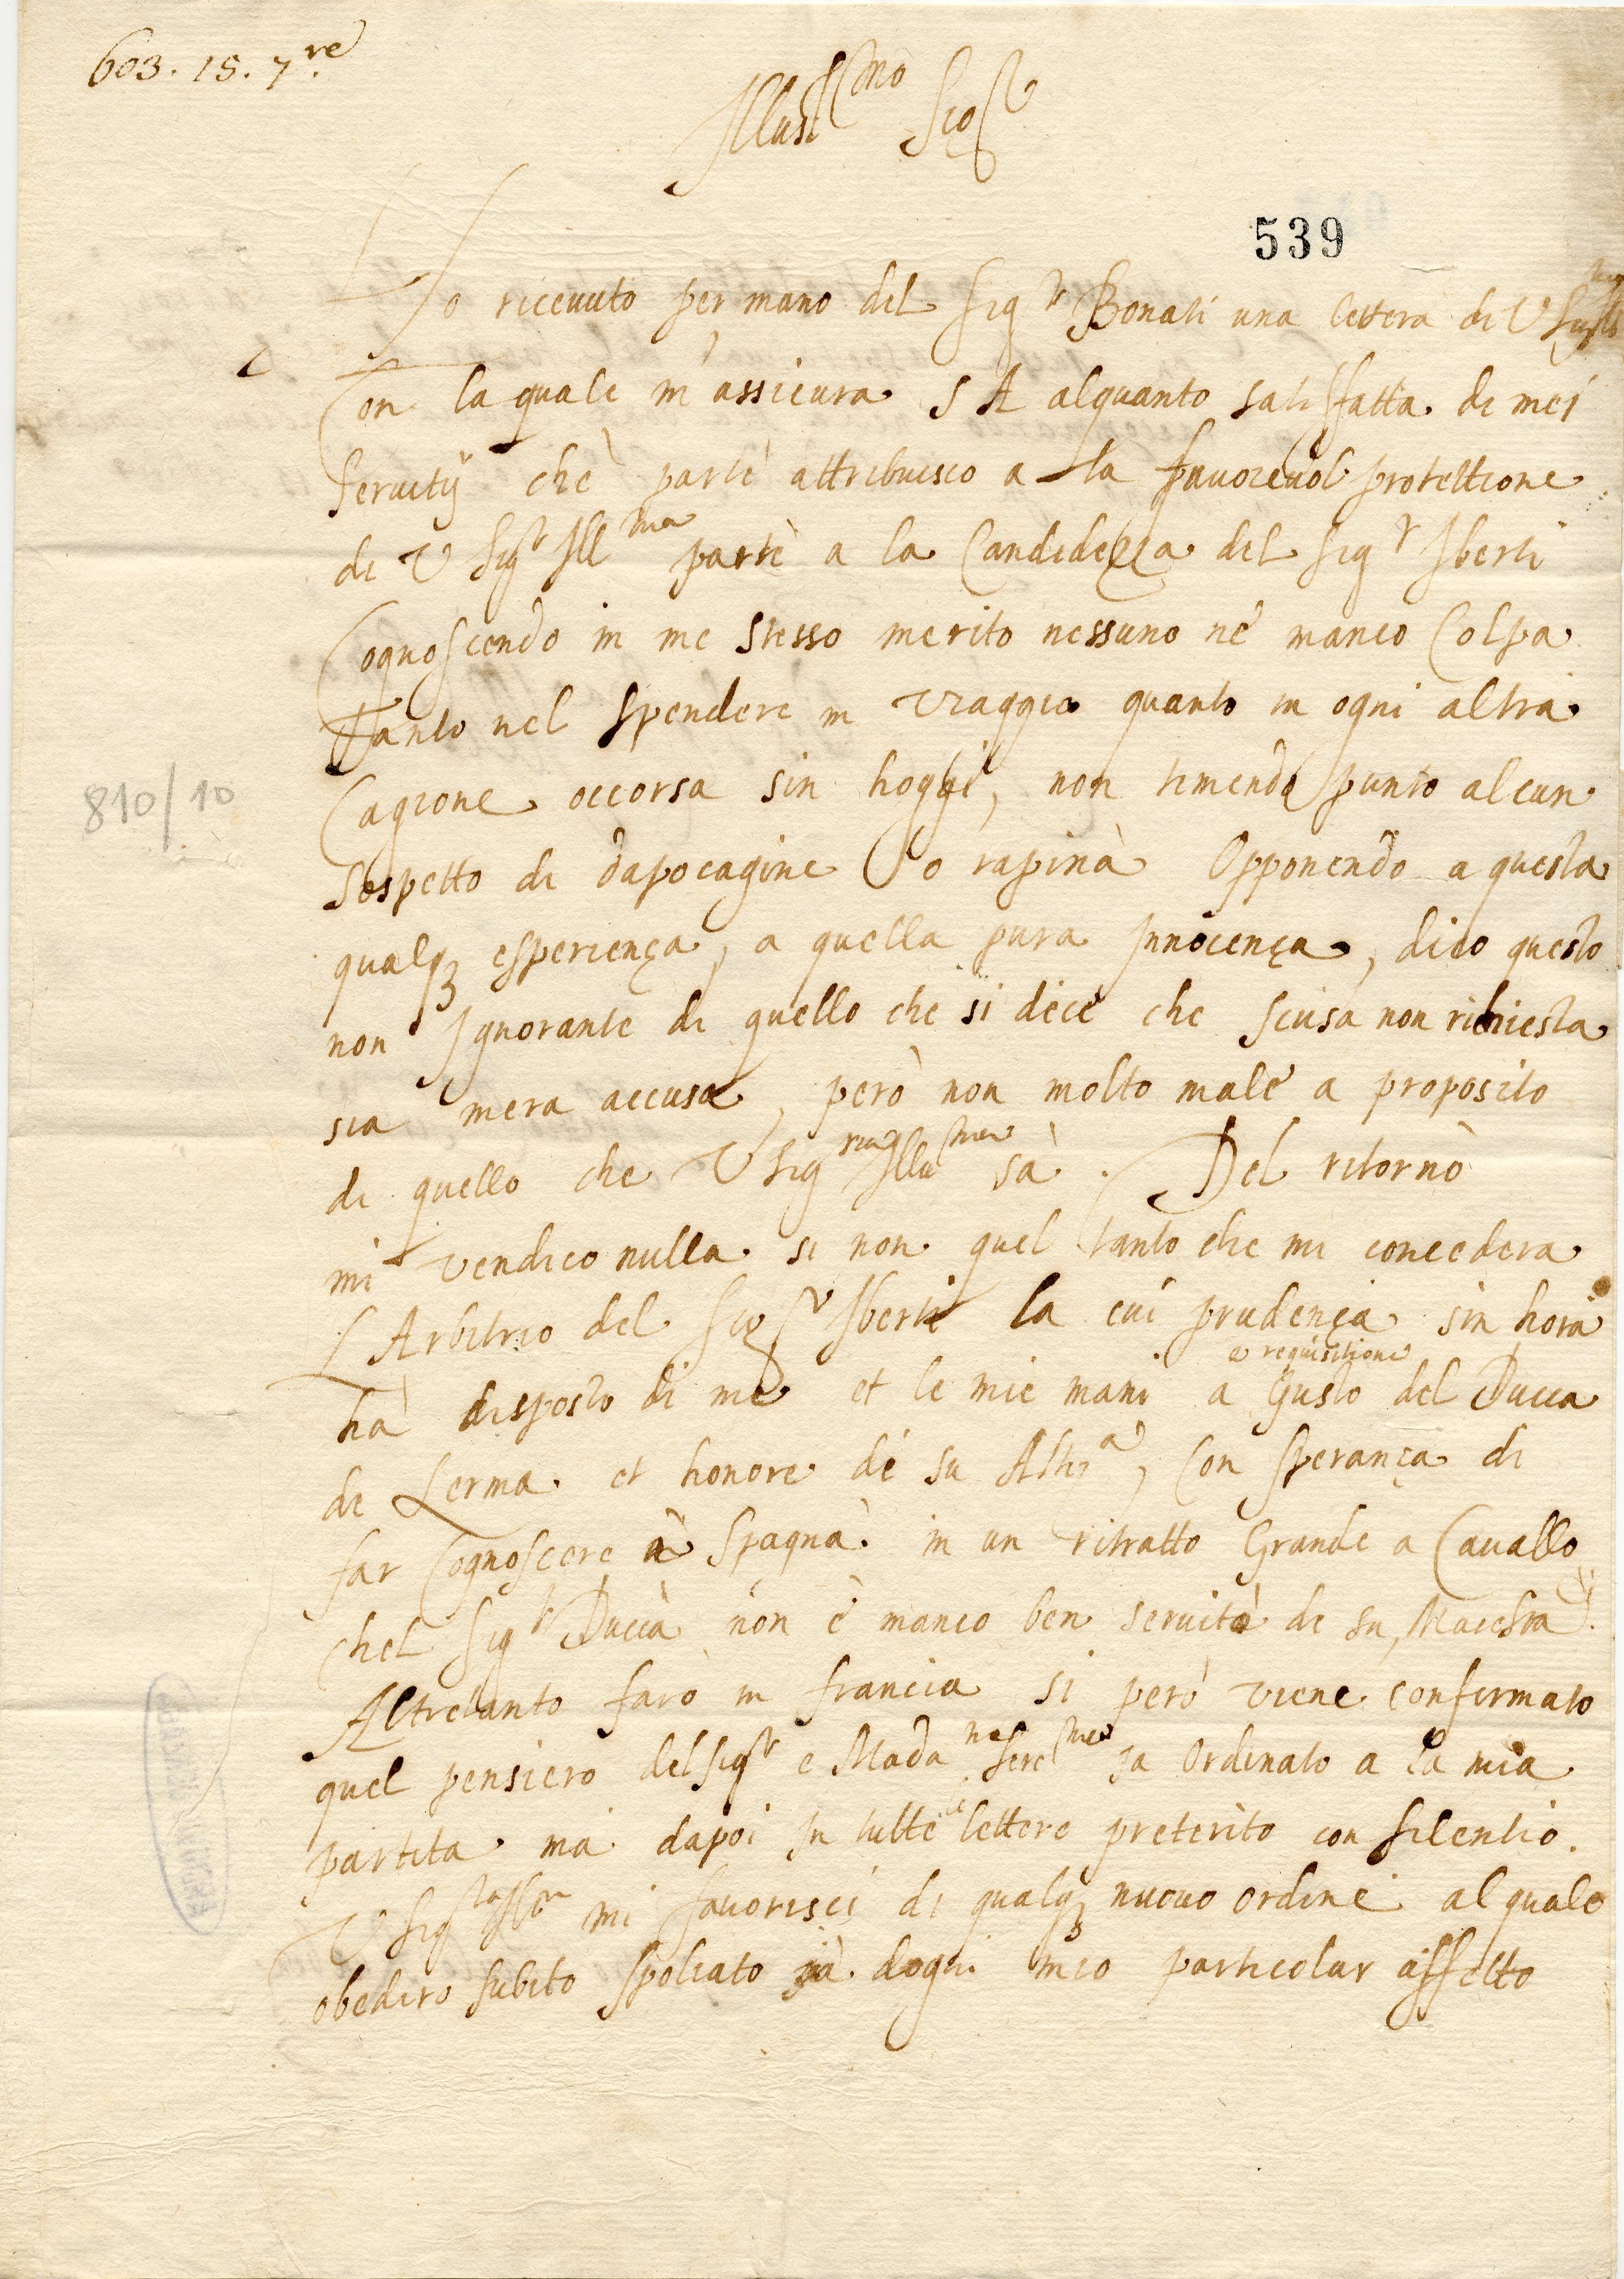 603. 15. 7.re
Illustmo Sigr
539
Ho ricevuto per mano del Sigr Bonati una lettera di V Sig
Con la quale m'assicura S A alquanto satisfatta di mei
servitij chè parte attribuisco a la favorevol protettione
di V Sigr Illma partè a la Candidezza del Sigr Iberti
Cognoscendo in me stesso merito nessuno nè manco Colpa
Tanto nel spendere in viaggio quanto in ogni altra
Cagione occorsa sin hoggi, non timendo punto alcun
sospetto di dapocagine o rapinà Opponendo a questa
qualq3 esperiença, a quella pura Innocença, dico questo
non Ignorante di quello che si dice che scusa non richiesta
sia mera accusa, però non molto male a proposito
di quello che V Sigria Illma sà. Del ritornò
mi vendico nulla si non quel tanto che mi concedera
L'Arbitrio del Sigr Iberti la cui prudença sin hora
e requisitione
hà disposto di me et le mie mani a Gusto del Ducca
di Lerma et honore dé su Altza, Con sperança di
far Cognoscere à Spagna in un ritratto Grande a Cavallo
Chel Sigr Duccà non è manco ben servito di su Maestà.
Altretanto farò in francia si però viene confirmato
quel pensiero del Sigr e Madana Serema ja Ordinato a la mia
partita ma dapoi In tutte le lettere preterito con silentio.
V Sigria Illma mi favorisci di qualq3 nuovo ordine al quale
obediro subito spoliato jà dogni mio particolar affetto
810/10